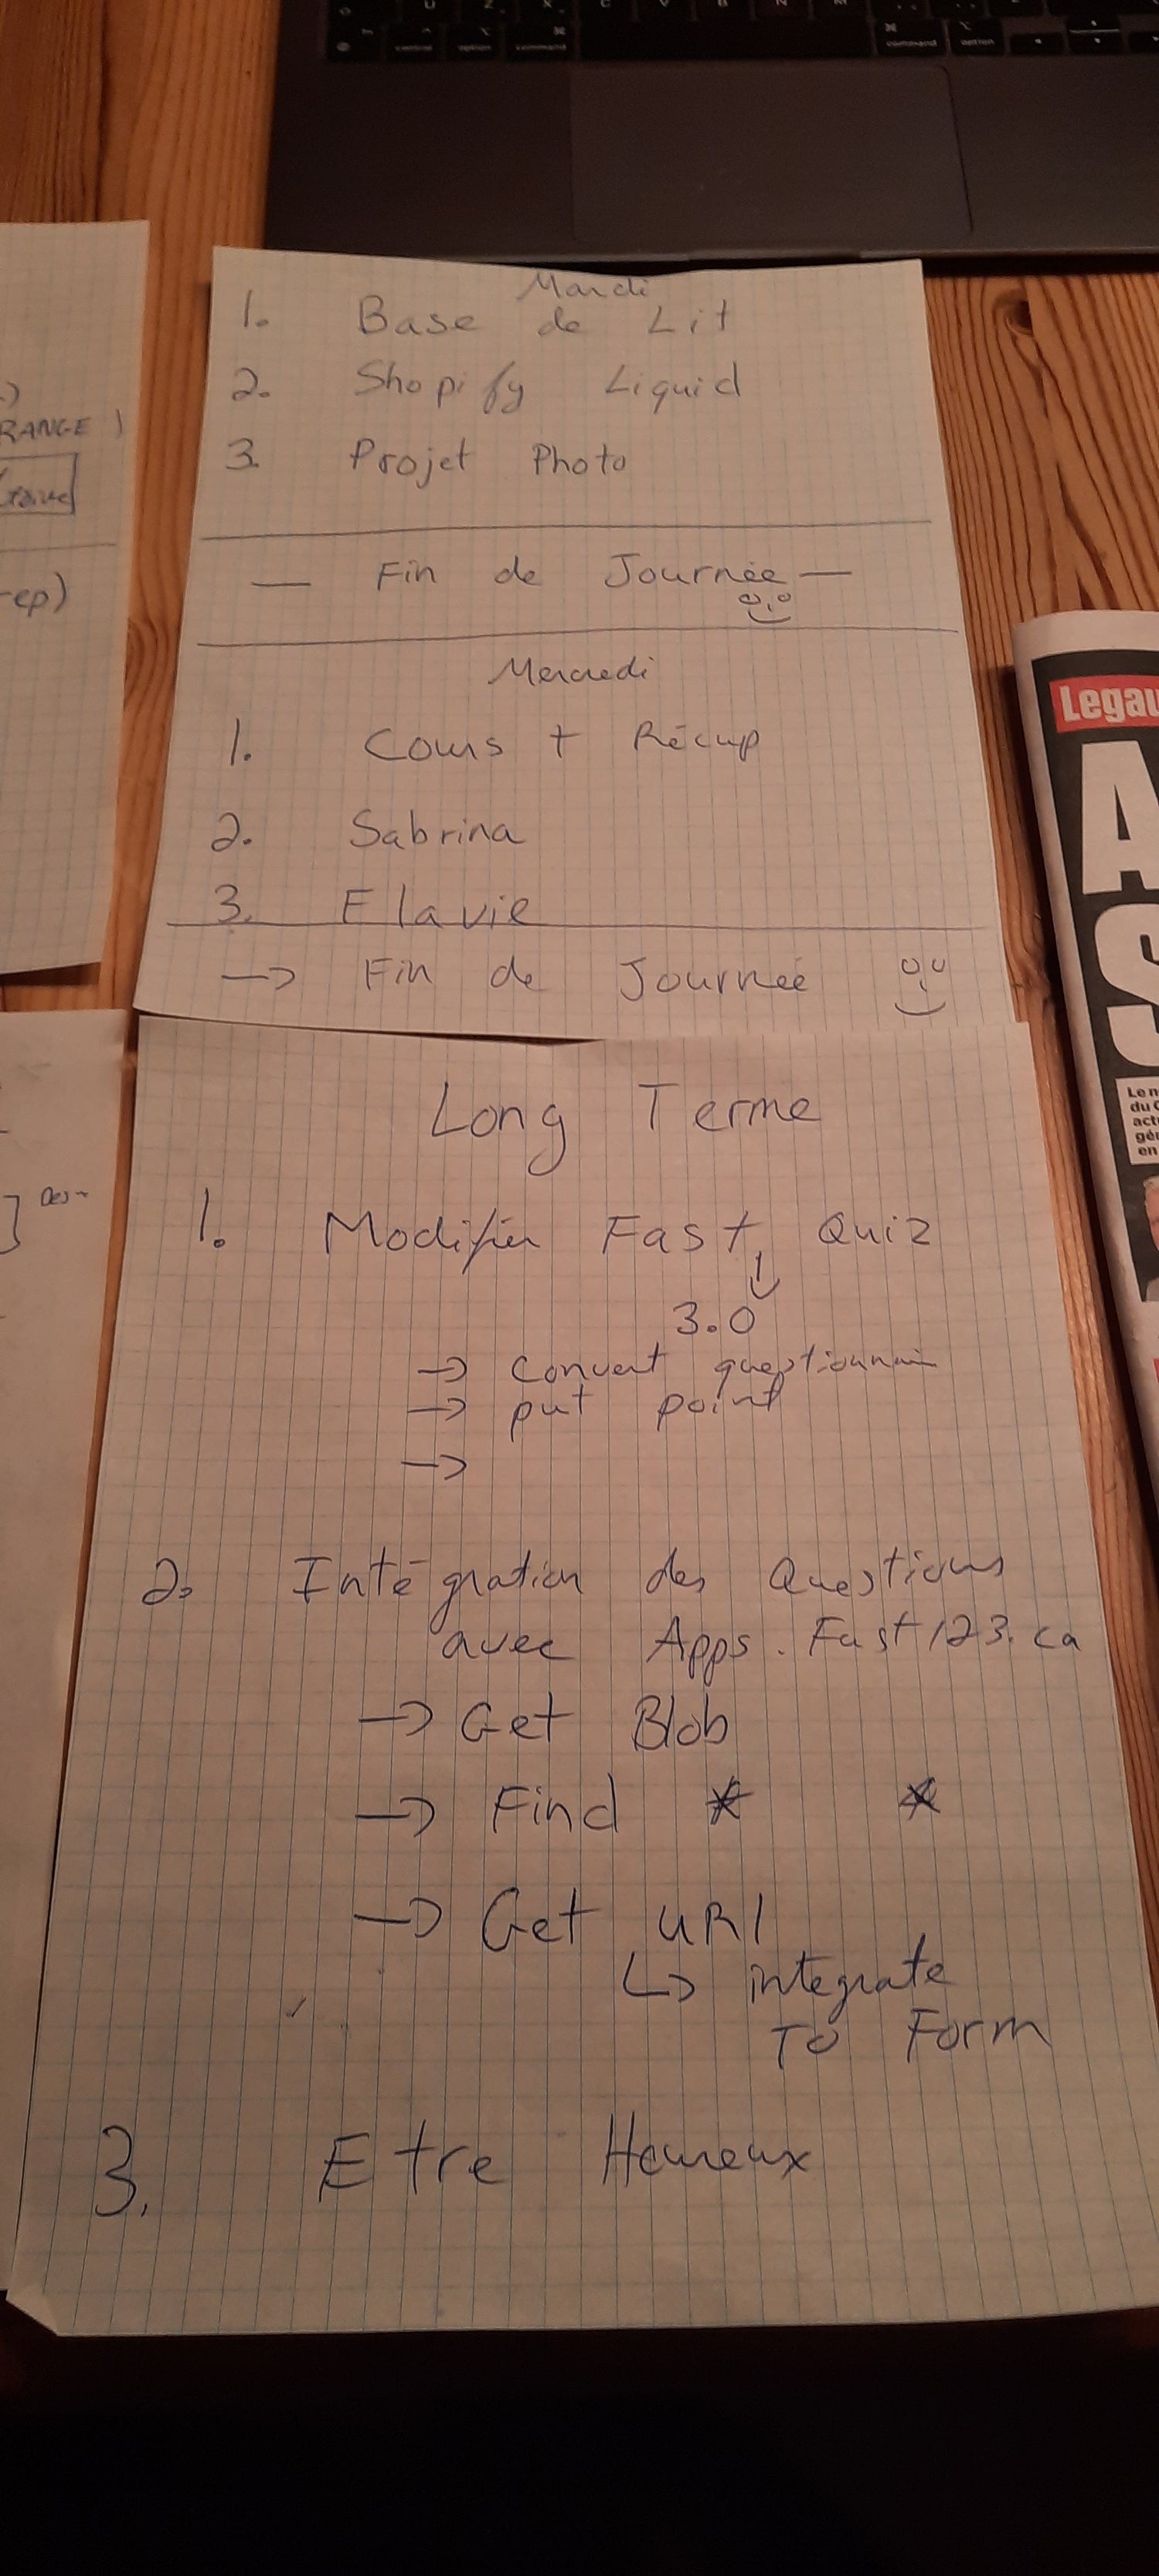 control option command command option
RANGE )
-ep)
Mardi
1. Base de Lit
2. Shopify Liquid
3. Projet Photo
— Fin de Journée —
Mercredi
1. Cours + Récup
2. Sabrina
3. Flavie
→ Fin de Journée
Long Terme
1. Modifier Fast Quiz
3.0
→ Convert questionnair
→ put point
→
2. Intégration des Questions
avec Apps.Fast123.ca
→ Get Blob
→ Find * *
→ Get URl
↳ integrate
To Form
3. Etre Heureux
Legau
A
S
Le n
du C
act
gén
en